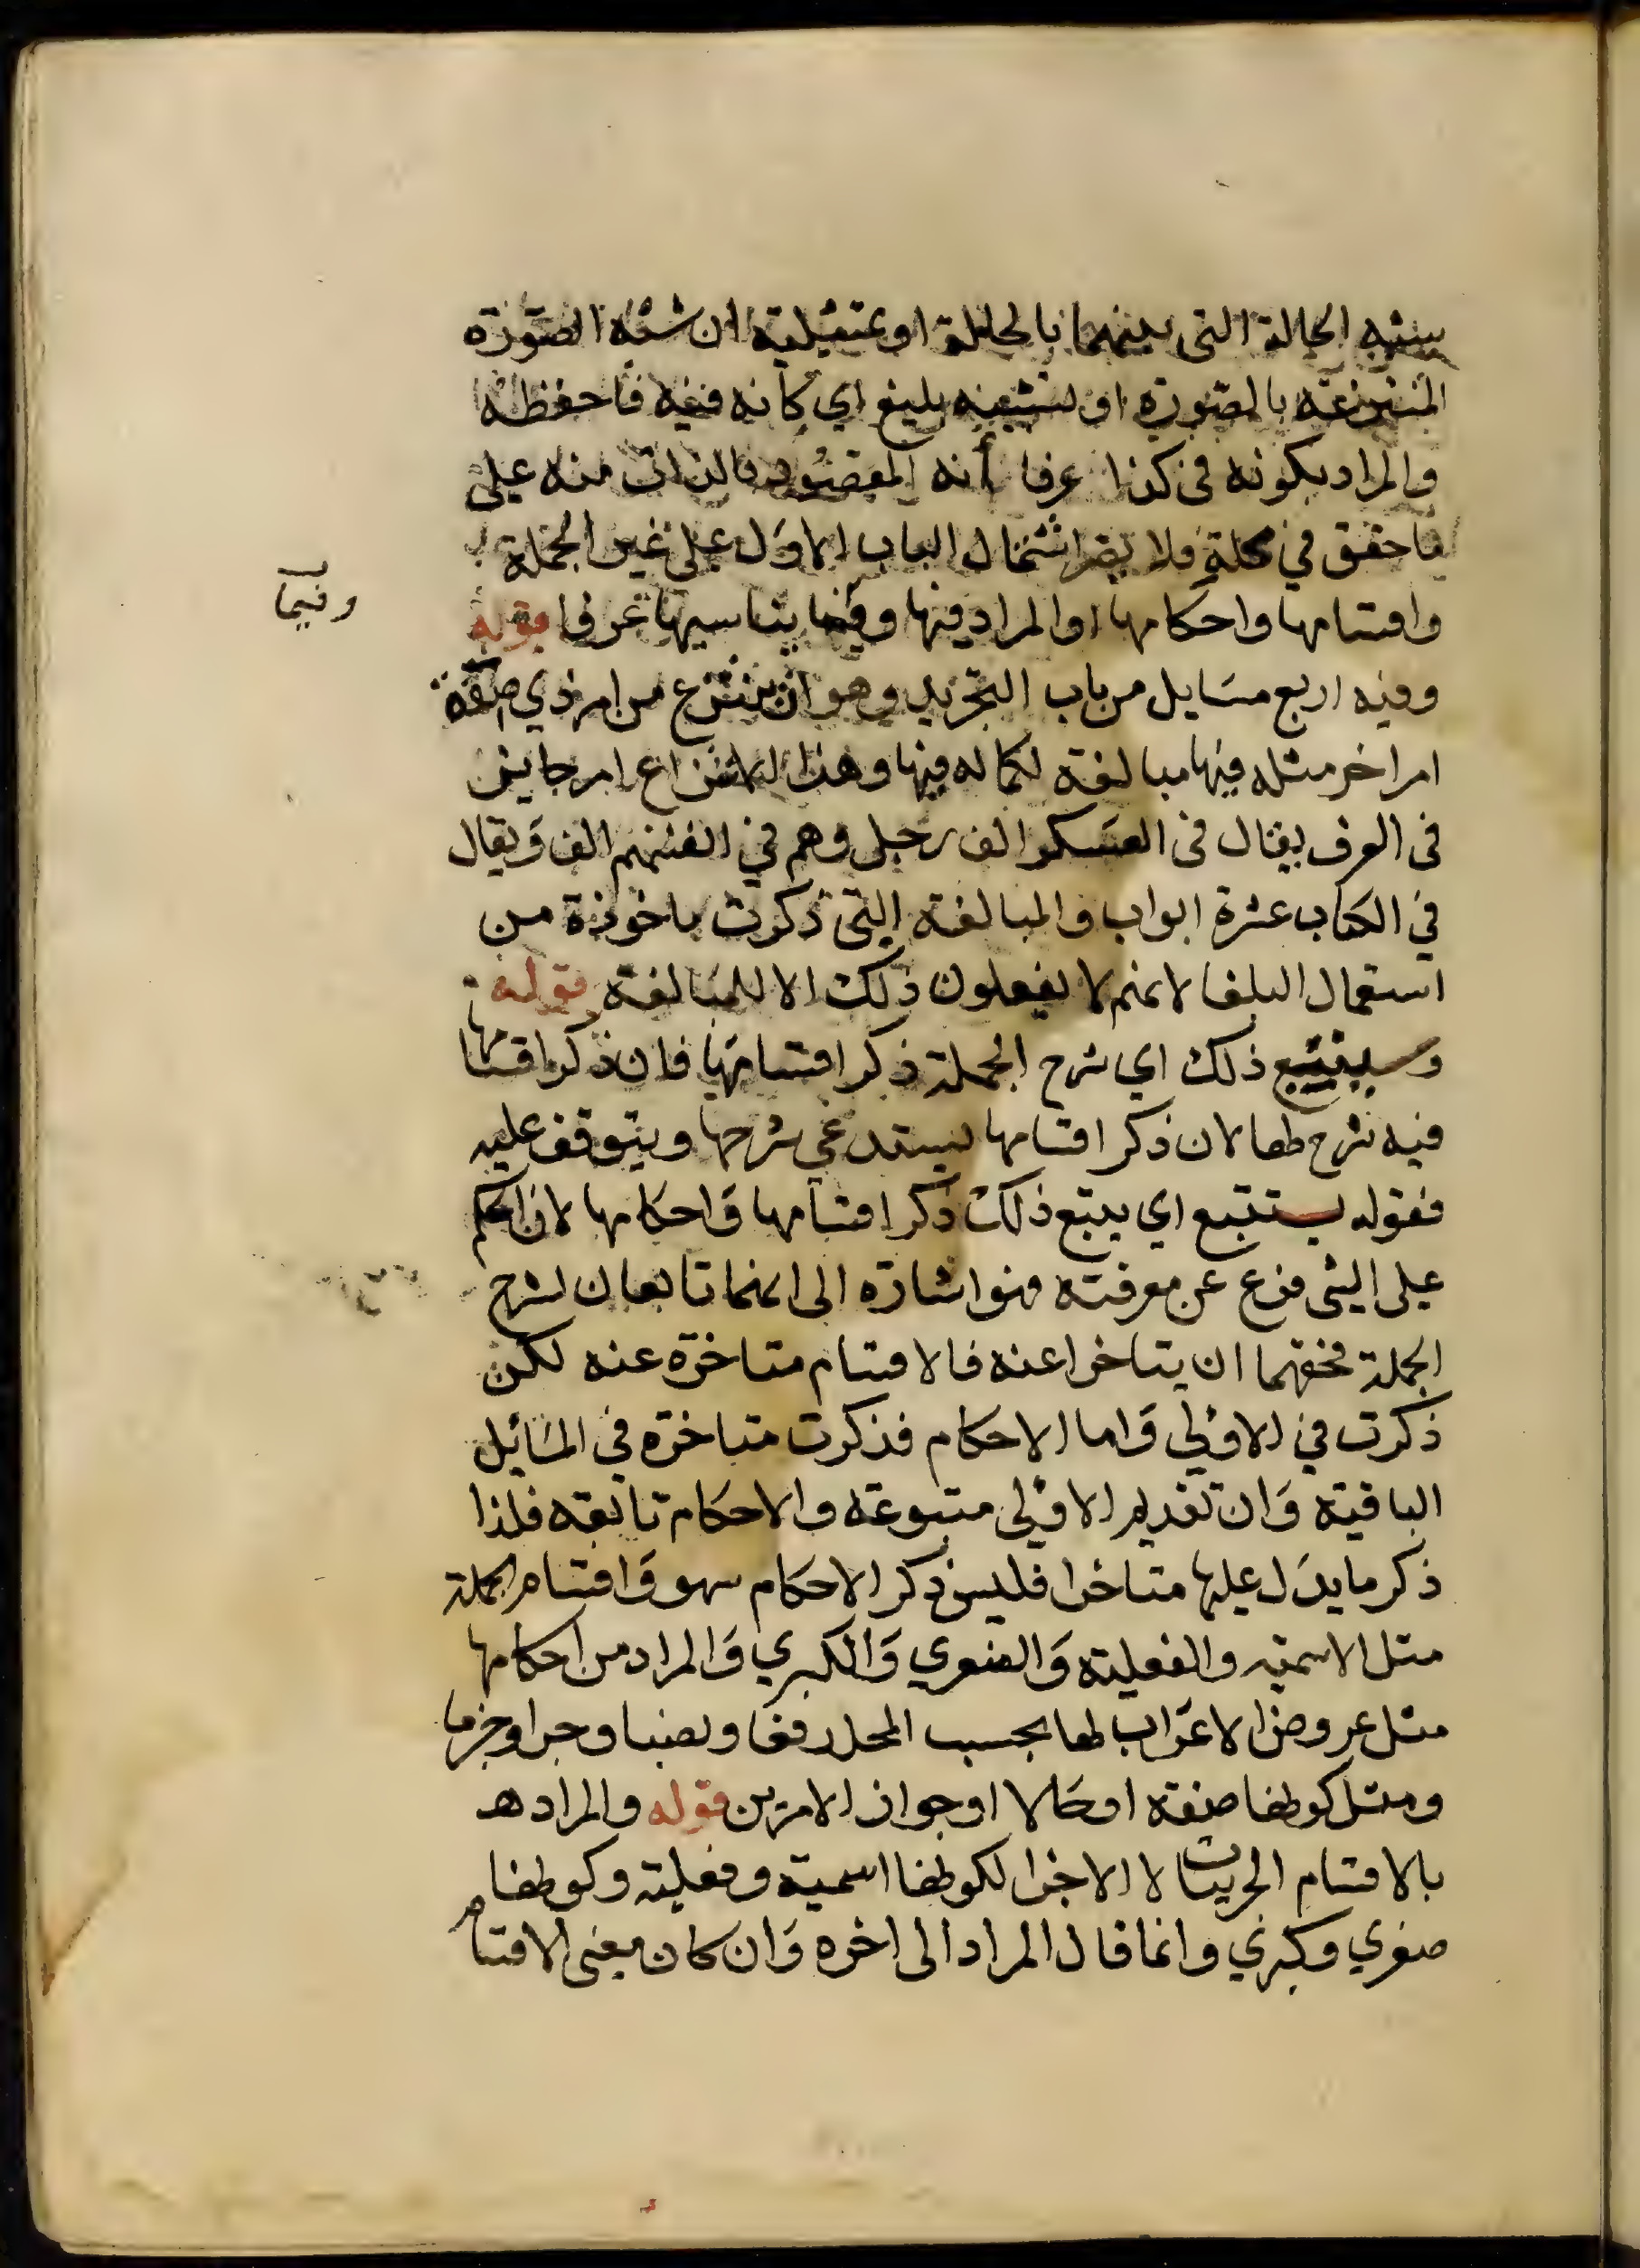 يشبه الحالة التي بينهما بالحالة او تمثيلية ان شبه الصورة
المنتزعة بالصورة او تشبيه بليغ اي كانه فيه فاحفظه
والمراد بكونه في كذا عرفا أنه المقصود بالذات منه على
ما حقق في محله فلا يضر اشتمال الباب الاول على غير الجملة
واقسامها واحكامها اوالمراد فيها وفيما يناسبها عرفا قوله
وفيما
وفيه اربع مسايل من باب التجريد وهو ان ينتزع من امر ذي صفة
امر اخر مثله فيها مبالغة لكماله فيها وهذا الانتزاع امر جاير
في العرف يقال في العسكر الف رجل وهم في انفسهم الف وَيقال
في الكتاب عشرة ابواب والمبالغة التي ذكرت ماخوذة من
استعمال البلغا لانهم لا يفعلون ذلك الا للمبالغة قوله
وسيتبع ذلك اي شرح الجملة ذكر اقسامها فان ذكر اقسامها
فيه شرح لها لان ذكر اقسامها يستدعي شرحها ويتوقف عليه
فقوله يستتبع اي يتبع ذلك ذكر اقسامها وَاحكامها لان الحكم
على الشى فرع عن معرفته فهو اشارة الى انهما تابعان لشرح
الجملة فحقهما ان يتاخرا عنه فالاقسام متاخرة عنه لكن
ذكرت في الاوْلي وَاما الاحكام فذكرت متاخرة في المسَائل
الباقية وَان تقديم الاوْلى متبوعة والاحكام تابعة فلذا
ذكر ما يدَل عليها متاخرا فليس ذكر الاحكام سهو وَاقسام الجملة
مثل الاسمية والفعلية وَالصغري وَالكبري وَالمراد من احكامها
مثل عروض الاعرَاب لها بحسب المحل رفعا ونصبا وجرا وجزما
ومثل كونها صفة اوحَالا اوجواز الامرَين قوله والمراد هـ
بالاقسام الجزيات لا الاجزا لكونها اسمية وفعلية وكونها
صغري وكبرَي وانما قال المراد الى اخره وَان كان معنى الاقسام